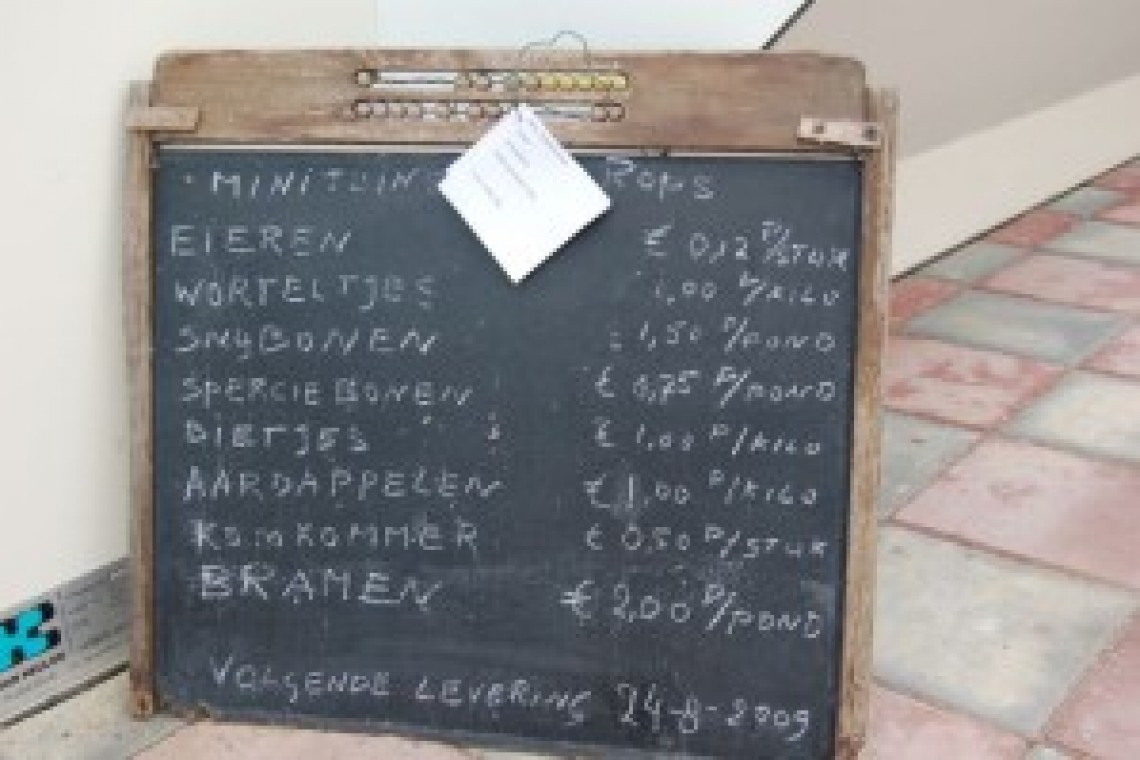 Rops
EIEREN € 0,12 P/STUK
WORTELTJES 1,00 P/KILO
SNYBONEN : 1,50 P/POND
SPERCIEBONEN € 0,75 P/POND
BIETJES € 1,00 P/KILO
AARDAPPELEN € 1,00 P/KILO
KOMKOMMER € 0,50 P/STUK
BRAMEN € 2,00 P/POND
VOLGENDE LEVERING 24-8-2009